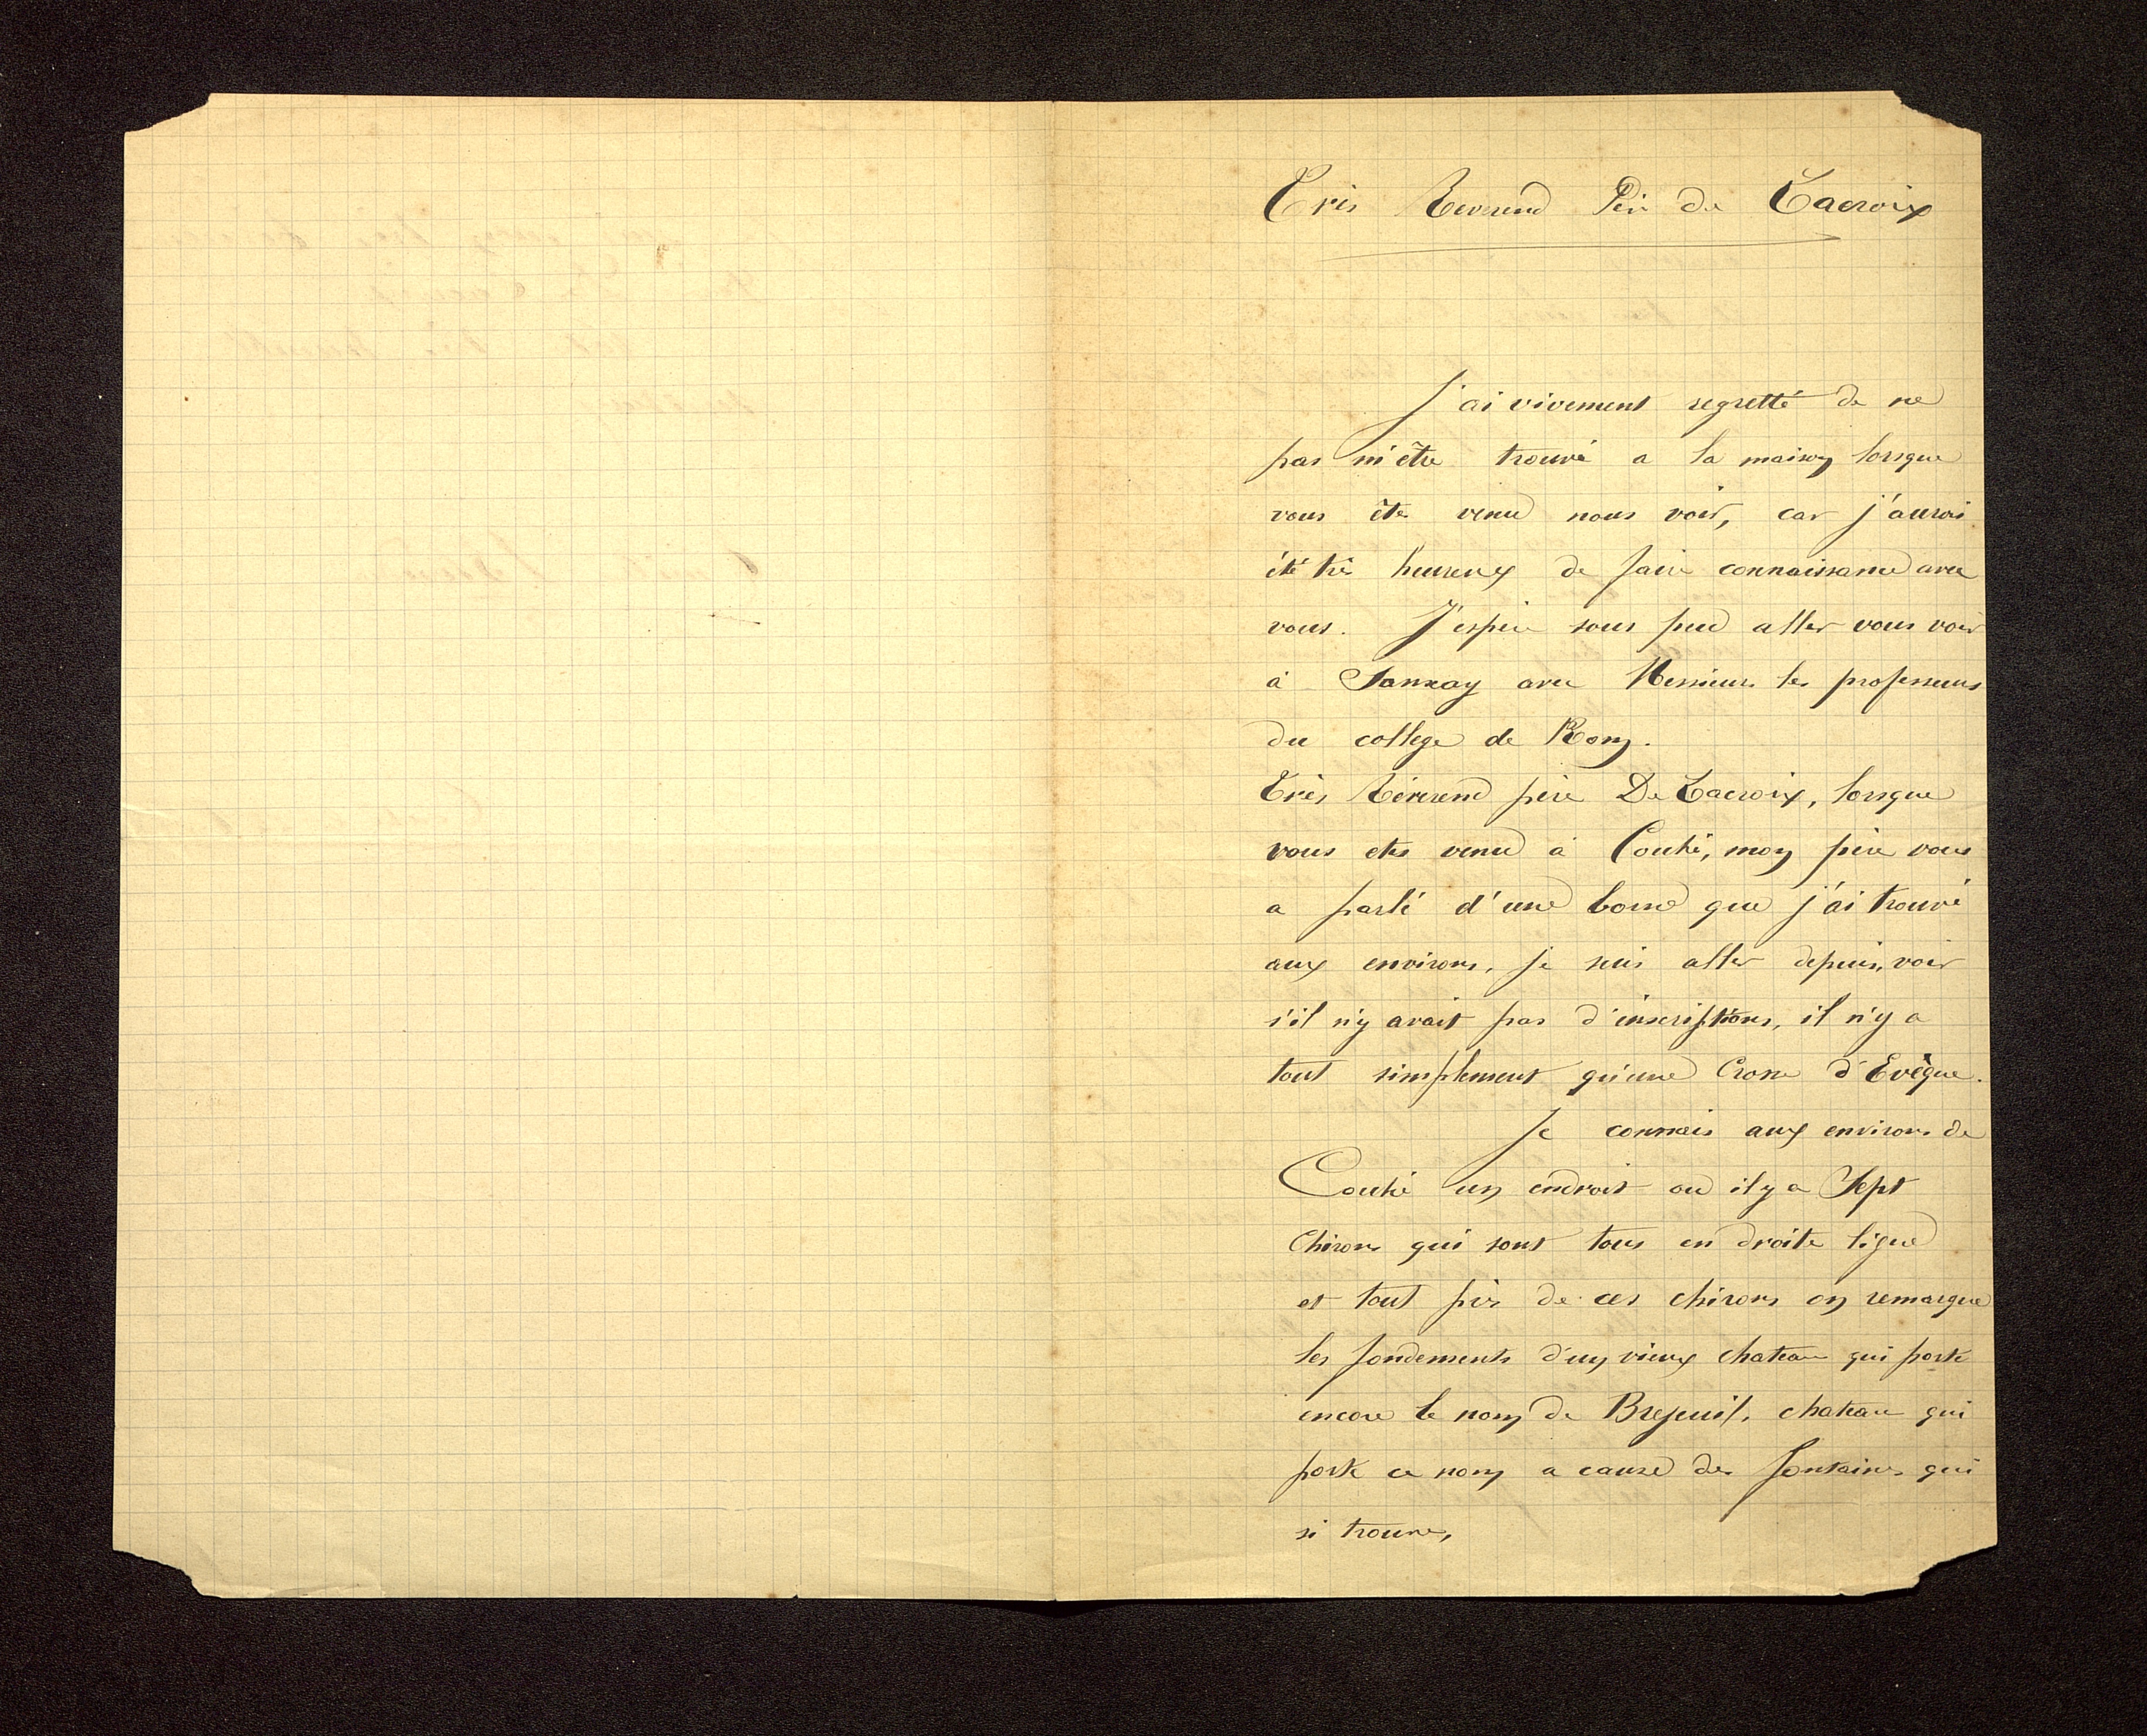 Très Reverend Père de Lacroix
J'ai vivement regretté de ne
pas m'être trouvé a la maison lorsque
vous ête venu nous voir, car j'aurais
été très heureux de faire connaissance avec
vous. J'espère sous peu aller vous voir
à Sanxay avec Messieurs les professeurs
du collège de Rom.
Très Révérend père De Lacroix, lorsque
vous etes venu à Couhé, mon père vous
a parlé d'une borne que j'ai trouvé
aux environs, je suis aller depuis, voir
s'il n'y avait pas d'inscriptions, il n'y a
tout simplement qu'une Crosse d'Evêque.
Je connais aux environs de
Couhé un endroit ou il y a Sept
Chirons qui sont tous en droite ligne
et tout près de ces chirons on remarque
les fondements d'un vieux chateau qui porte
encore le nom de Brejeuil, chateau qui
porte ce nom a cause des fontaines qui
si trouve,